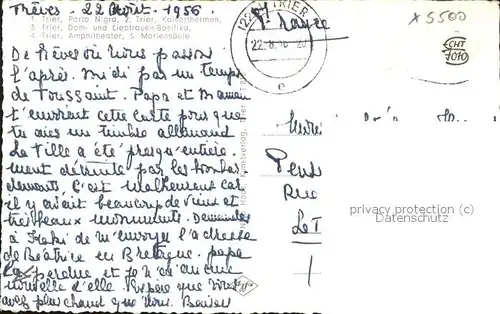 Trèves - 22 Août - 1956.
1. Trier, Porta Nigra, 2. Trier, Kaiserthermen,
3. Trier, Dom- und Liebfrauen-Basilika,
4. Trier, Amphitheater, 5. Mariensäule
De Trèves où nous passons
l'après-midi par un temps
de Toussaint. Papa et Maman
t'envoient cette carte pour que
tu aies un timbre allemand
La Ville a été presqu'entière-
ment détruite par les bombar-
dements. C'est malheureux car
il y avait beaucoup de vieux et
très beaux monuments. Demandes
à de m'envoyer l'adresse
de Béatrice en Bretagne. papa
l'a perdue et je n'ai aucune
nouvelle d'elle. J'espère que vous
avez plus chaud que nous. Baisers
TRIER
22.8.56-20
e
France
X5500
CHT
7010
Pens
Rue
Le T
privacy protection
Datenschutz